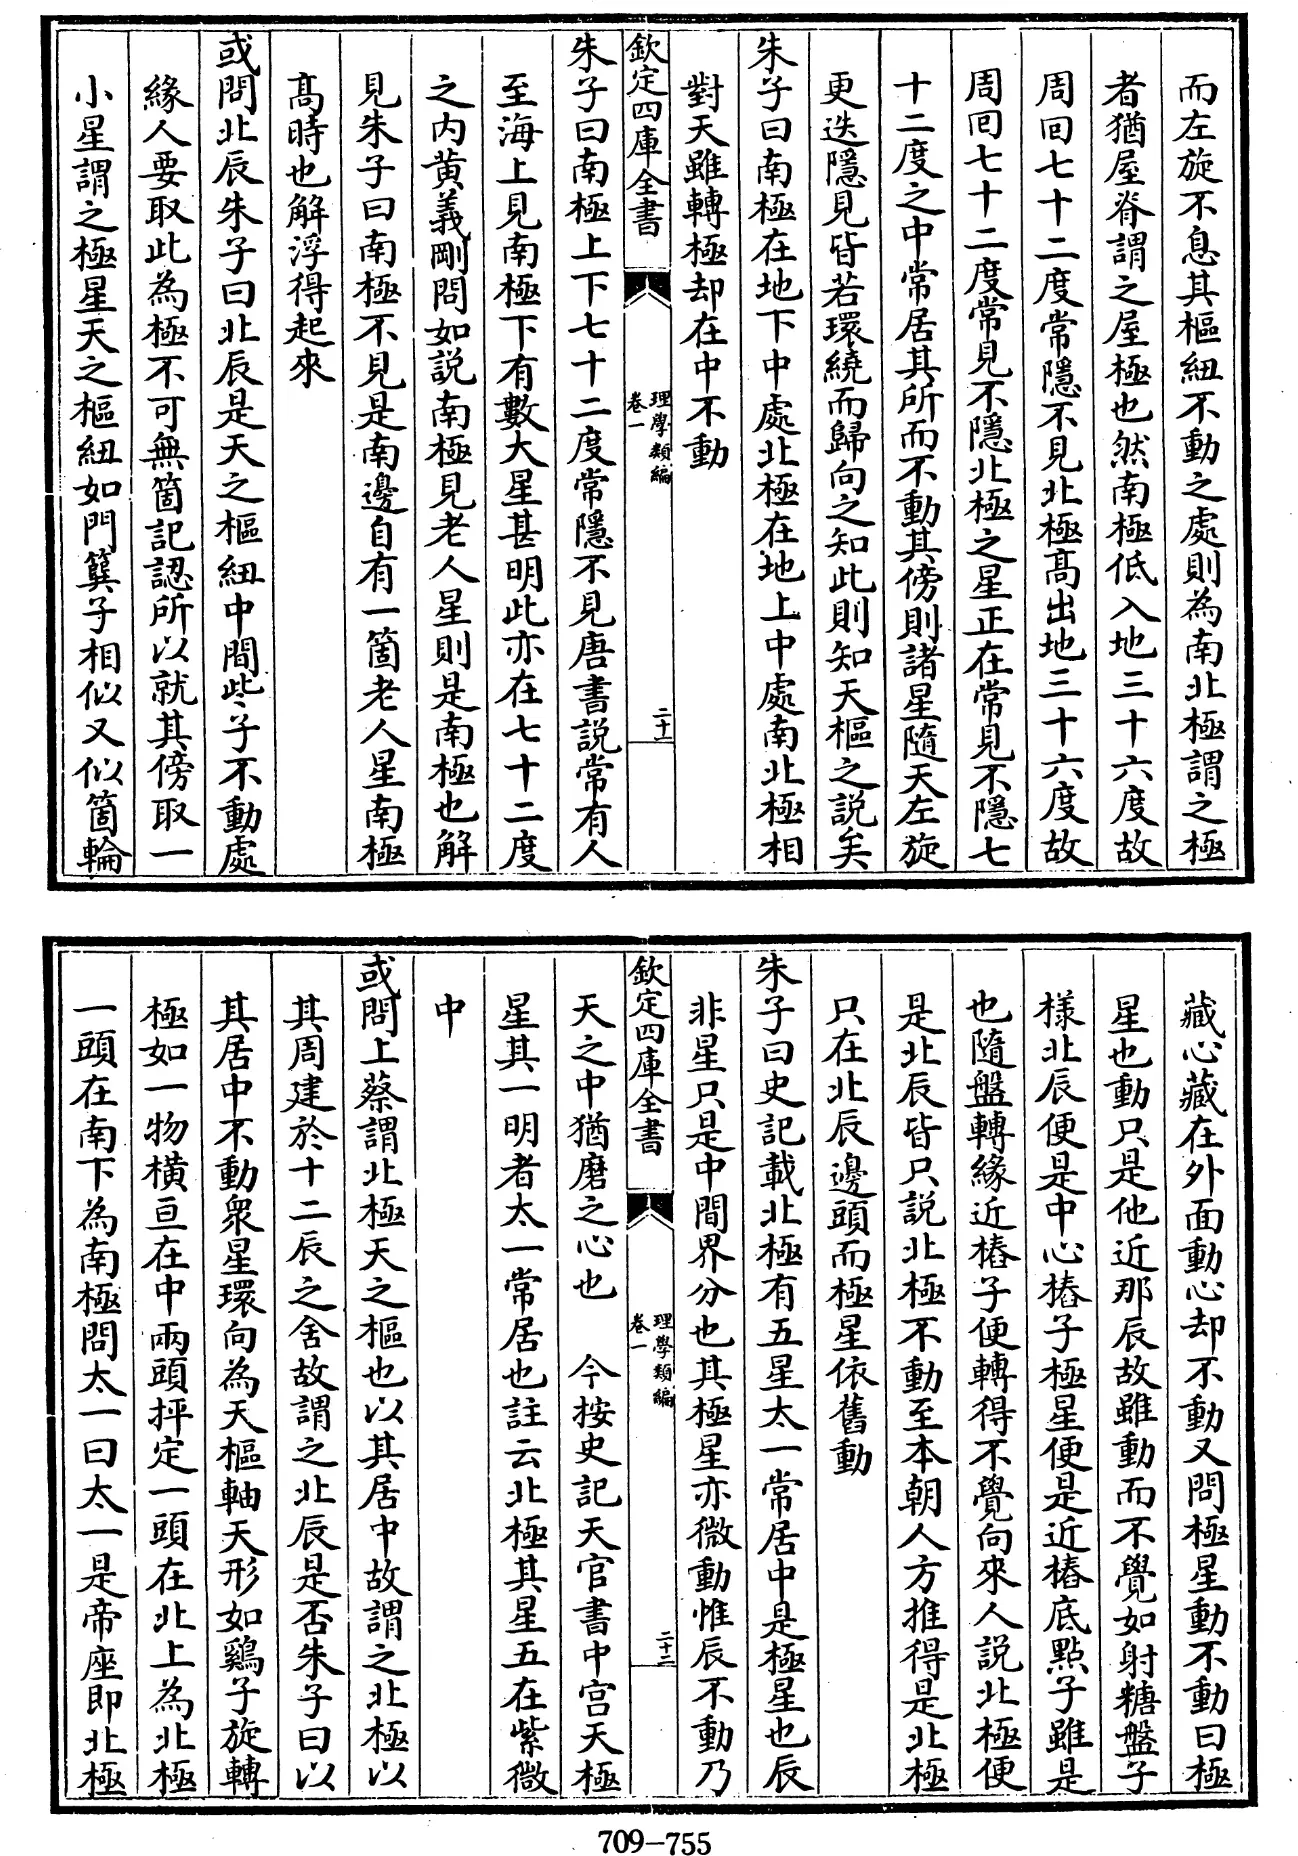 而左旋不息其樞紐不動之處則為南北極謂之極
者猶屋脊謂之屋極也然南極低入地三十六度故
周回七十二度常隱不見北極高出地三十六度故
周回七十二度常見不隱北極之星正在常見不隱七
十二度之中常居其所而不動其傍則諸星隨天左旋
更迭隱見皆若環繞而歸向之知此則知天樞之説矣
朱子曰南極在地下中處北極在地上中處南北極相
對天雖轉極却在中不動
欽定四庫全書
理學類編
卷一
二十一
朱子曰南極上下七十二度常隱不見唐書説常有人
至海上見南極下有數大星甚明此亦在七十二度
之内黄義剛問如説南極見老人星則是南極也解
見朱子曰南極不見是南邊自有一箇老人星南極
高時也解浮得起來
或問北辰朱子曰北辰是天之樞紐中間些子不動處
緣人要取此為極不可無箇記認所以就其傍取一
小星謂之極星天之樞紐如門簨子相似又似箇輪
藏心藏在外面動心却不動又問極星動不動曰極
星也動只是他近那辰故雖動而不覺如射糖盤子
様北辰便是中心樁子極星便是近樁底點子雖是
也隨盤轉緣近樁子便轉得不覺向來人説北極便
是北辰皆只説北極不動至本朝人方推得是北極
只在北辰邊頭而極星依舊動
朱子曰史記載北極有五星太一常居中是極星也辰
非星只是中間界分也其極星亦微動惟辰不動乃
欽定四庫全書
理學類編
卷一
二十二
天之中猶磨之心也 今按史記天官書中宫天極
星其一明者太一常居也註云北極其星五在紫微
中
或問上蔡謂北極天之樞也以其居中故謂之北極以
其周建於十二辰之舍故謂之北辰是否朱子曰以
其居中不動衆星環向為天樞軸天形如鷄子旋轉
極如一物橫亘在中兩頭抨定一頭在北上為北極
一頭在南下為南極問太一曰太一是帝座即北極
709-755